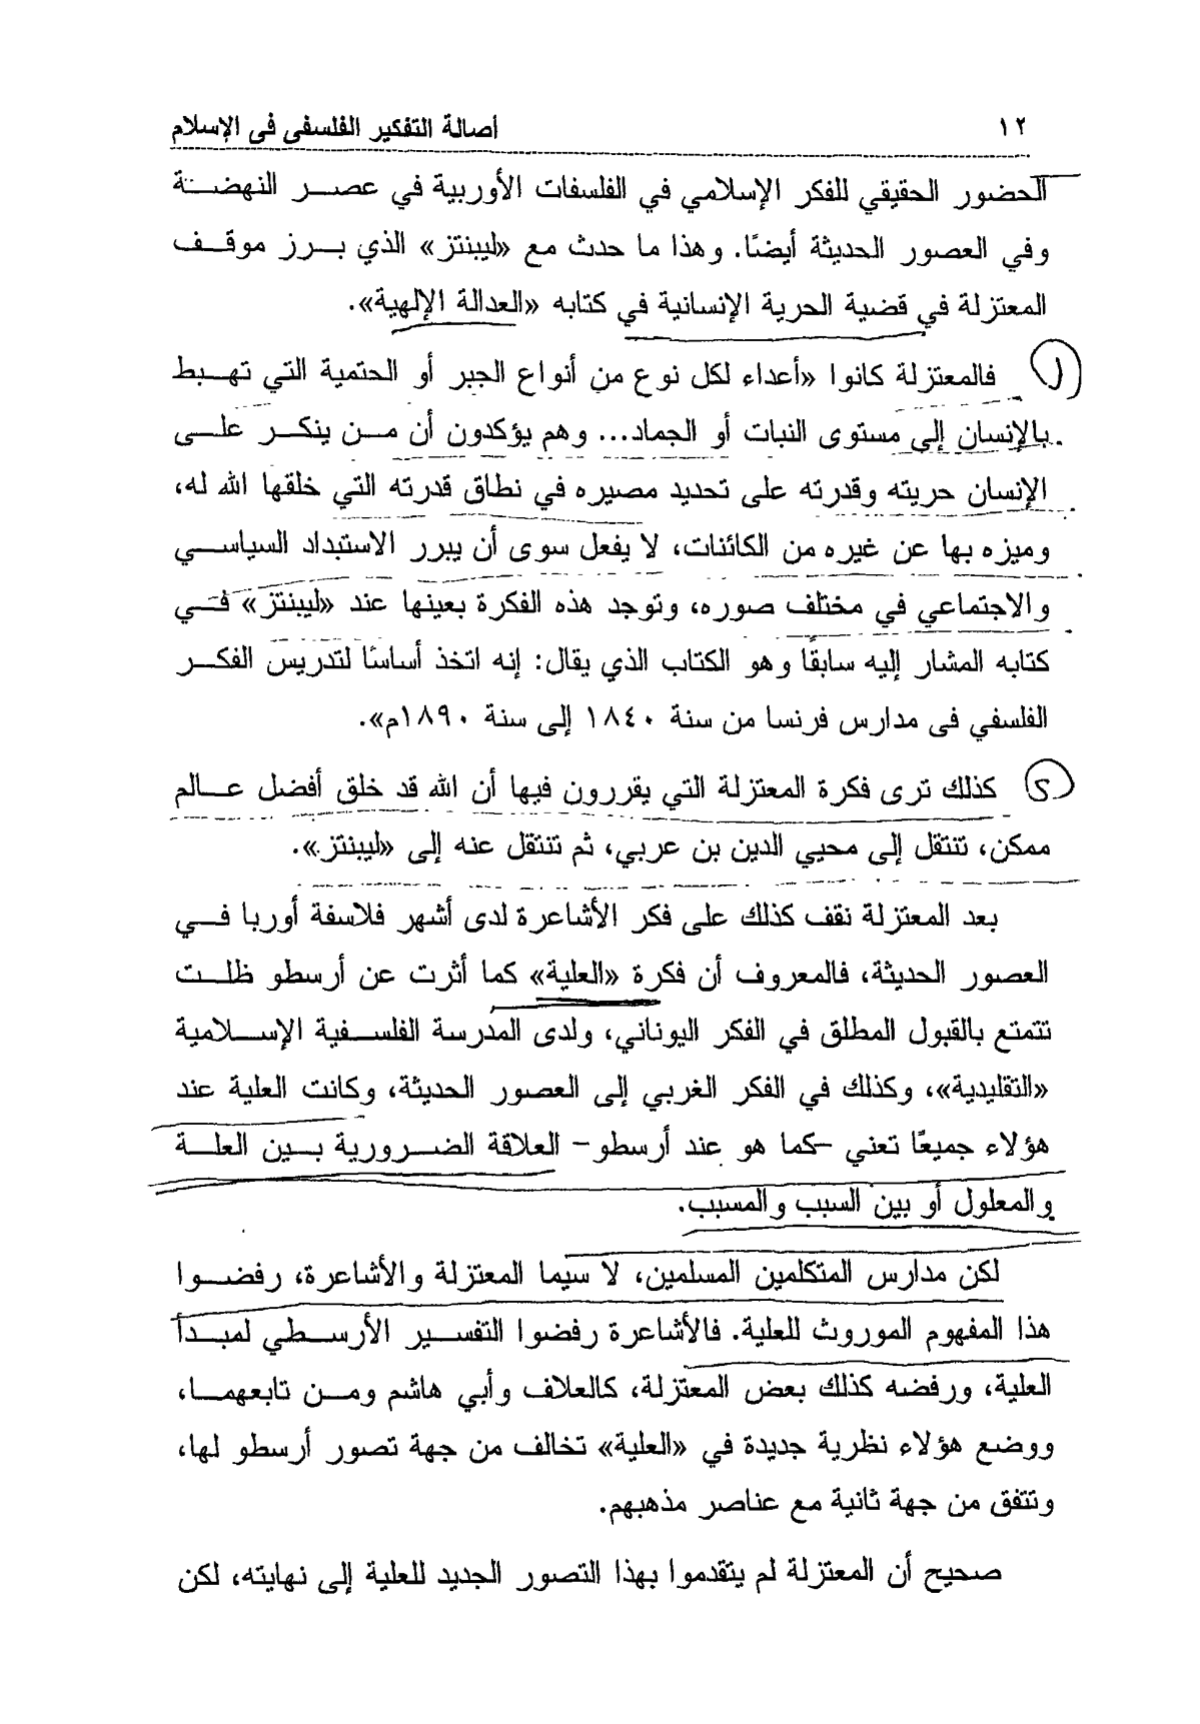 ١٢ أصالة التفكير الفلسفى فى الإسلام
الحضور الحقيقي للفكر الإسلامي في الفلسفات الأوربية في عصر النهضة
وفي العصور الحديثة أيضًا. وهذا ما حدث مع «ليبنتز» الذي برز موقف
المعتزلة في قضية الحرية الإنسانية في كتابه «العدالة الإلهية».
(١) فالمعتزلة كانوا «أعداء لكل نوع من أنواع الجبر أو الحتمية التي تهبط
بالإنسان إلى مستوى النبات أو الجماد... وهم يؤكدون أن من ينكر على
الإنسان حريته وقدرته على تحديد مصيره في نطاق قدرته التي خلقها الله له،
وميزه بها عن غيره من الكائنات، لا يفعل سوى أن يبرر الاستبداد السياسي
والاجتماعي في مختلف صوره، وتوجد هذه الفكرة بعينها عند «ليبنتز» في
كتابه المشار إليه سابقًا وهو الكتاب الذي يقال: إنه اتخذ أساسًا لتدريس الفكر
الفلسفي فى مدارس فرنسا من سنة ١٨٤٠ إلى سنة ١٨٩٠م».
(2) كذلك ترى فكرة المعتزلة التي يقررون فيها أن الله قد خلق أفضل عالم
ممكن، تنتقل إلى محيي الدين بن عربي، ثم تنتقل عنه إلى «ليبنتز».
بعد المعتزلة نقف كذلك على فكر الأشاعرة لدى أشهر فلاسفة أوربا في
العصور الحديثة، فالمعروف أن فكرة «العلية» كما أثرت عن أرسطو ظلت
تتمتع بالقبول المطلق في الفكر اليوناني، ولدى المدرسة الفلسفية الإسلامية
«التقليدية»، وكذلك في الفكر الغربي إلى العصور الحديثة، وكانت العلية عند
هؤلاء جميعًا تعني -كما هو عند أرسطو- العلاقة الضرورية بين العلة
والمعلول أو بين السبب والمسبب.
لكن مدارس المتكلمين المسلمين، لا سيما المعتزلة والأشاعرة، رفضوا
هذا المفهوم الموروث للعلية. فالأشاعرة رفضوا التفسير الأرسطي لمبدأ
العلية، ورفضه كذلك بعض المعتزلة، كالعلاف وأبي هاشم ومن تابعهما،
ووضع هؤلاء نظرية جديدة في «العلية» تخالف من جهة تصور أرسطو لها،
وتتفق من جهة ثانية مع عناصر مذهبهم.
صحيح أن المعتزلة لم يتقدموا بهذا التصور الجديد للعلية إلى نهايته، لكن